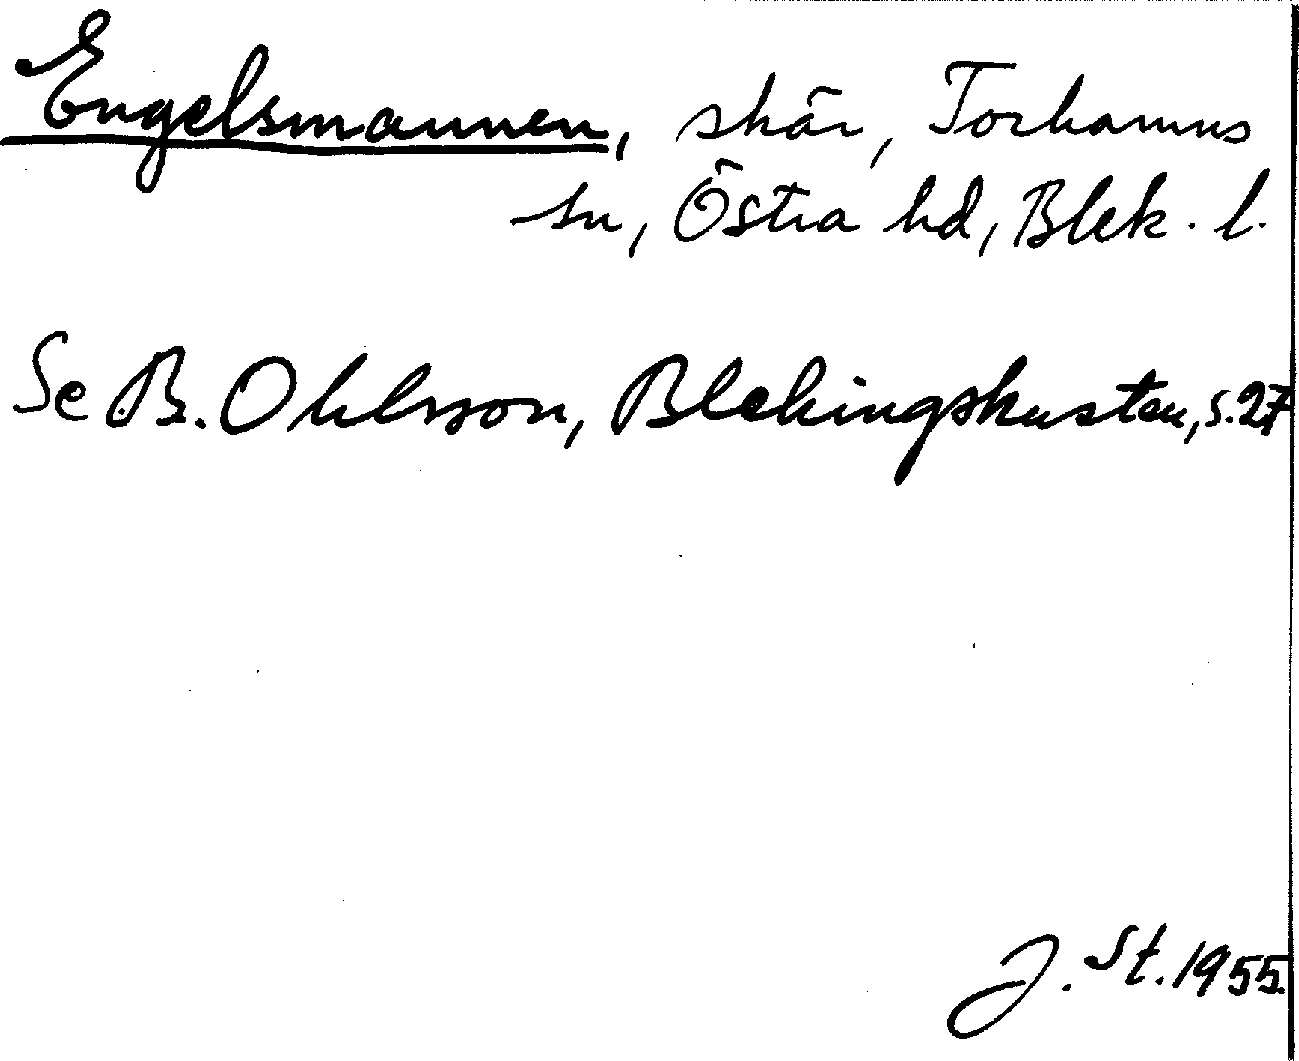 Engelsmannen, skär, Torhamns
sn, Östra hd, Blek. l.
Se B. Ohlsson, Blekingskusten, s. 27
J. St. 1955.